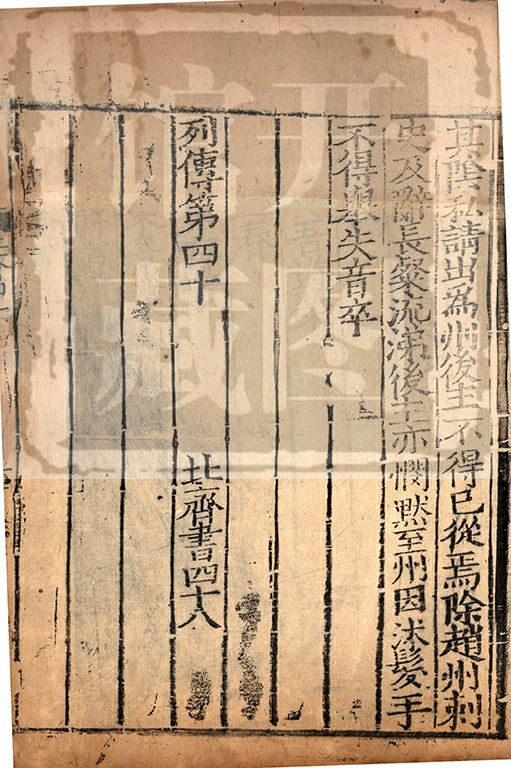 其陰私請出為州後主不得已從焉除趙州刺
史及辭長粲流涕後主亦憫默至州因沐髮手
不得舉失音卒
列傳第四十 北齊書四十八